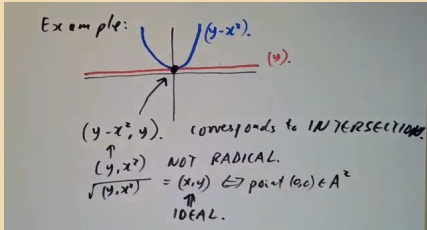 Example:
(y-x²)
(y).
(y-x², y). corresponds to INTERSECTION.
(y, x²) NOT RADICAL.
√(y,x²) = (x,y) ⟺ point (0,0) ∈ A²
IDEAL.